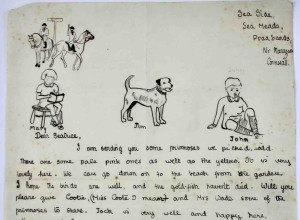 Sea Side,
Sea Meads,
Praa Sands,
Nr
Mary
Tim
John
Dear Beatrice,
I am sending you some primroses we picked wild.
There are some pale pink ones as well as the yellow. It is very
lovely here. We can go down on to the beach from the garden.
I hope the birds are well, and the gold-fish haven't died. Will you
please give Cootie (Miss Coote I meant) and Mrs Wade some of the
primroses to share. Jock is very well and happy here.